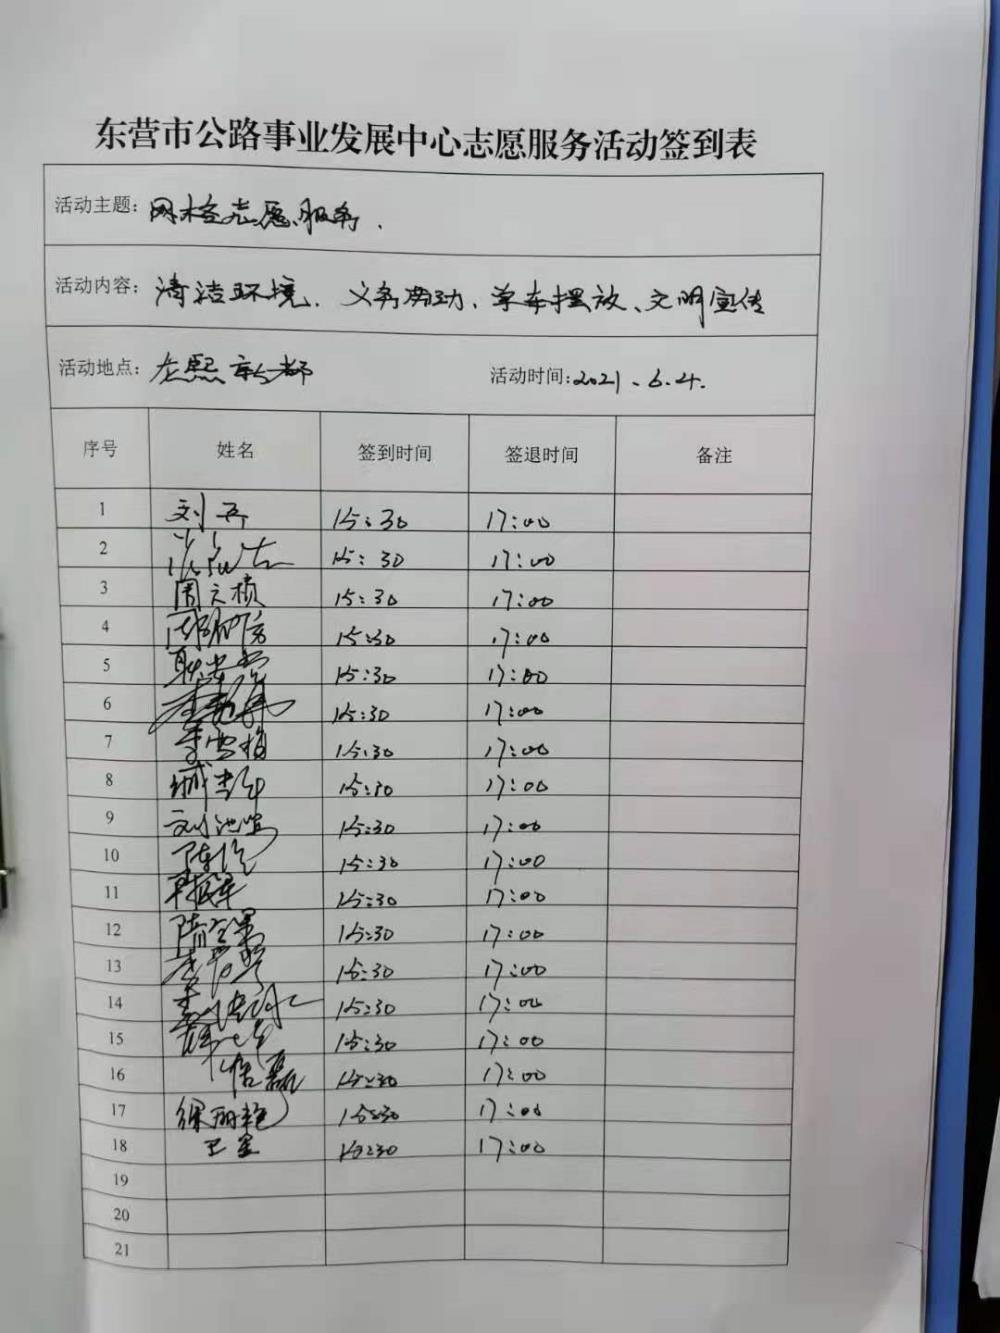 东营市公路事业发展中心志愿服务活动签到表
活动主题: 网格志愿服务.
活动内容: 清洁环境、义务劳动、单车摆放、文明宣传
活动地点: 龙熙新都 活动时间:2021.6.4.
序号 姓名 签到时间 签退时间 备注
1 15:30 17:00
2 15:30 17:00
3 周文桢 15:30 17:00
4 15:30 17:00
5 15:30 17:00
6 15:30 17:00
7 李雪梅 15:30 17:00
8 15:30 17:00
9 15:30 17:00
10 15:30 17:00
11 15:30 17:00
12 15:30 17:00
13 15:30 17:00
14 15:30 17:00
15 15:30 17:00
16 15:30 17:00
17 徐丽艳 15:30 17:00
18 卫星 15:30 17:00
19
20
21